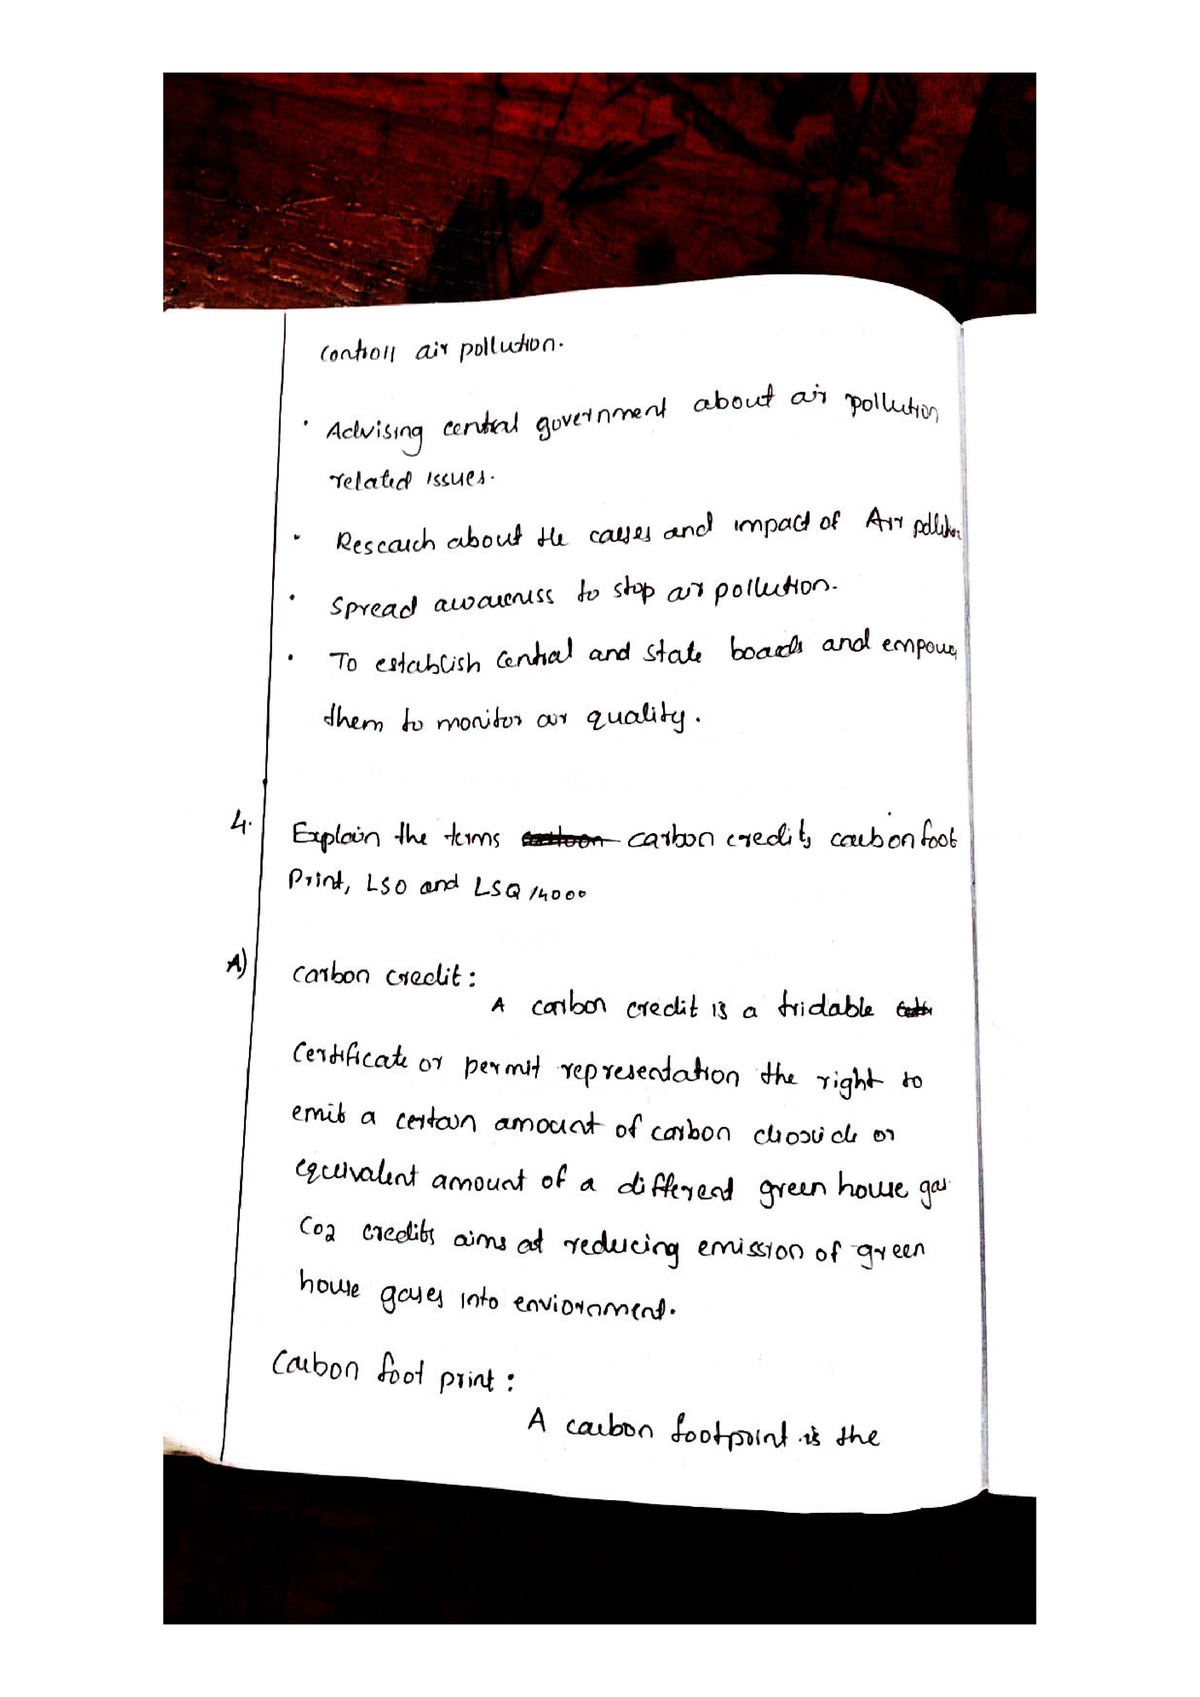 Controll air pollution.
• Advising central government about air pollution
related issues.
• Research about the causes and impact of Air pollution
• Spread awareness to stop air pollution.
• To establish central and state boards and empower
them to monitor air quality.
4. Explain the terms carbon credits, carbon foot
Print, LSO and LSQ 14000
A) Carbon credit:
A carbon credit is a tridable
Certificate or permit representation the right to
emit a certain amount of carbon dioxide or
equivalent amount of a different green house gas
CO2 credits aims at reducing emission of green
house gases into enviornment.
Carbon foot print:
A carbon footprint is the